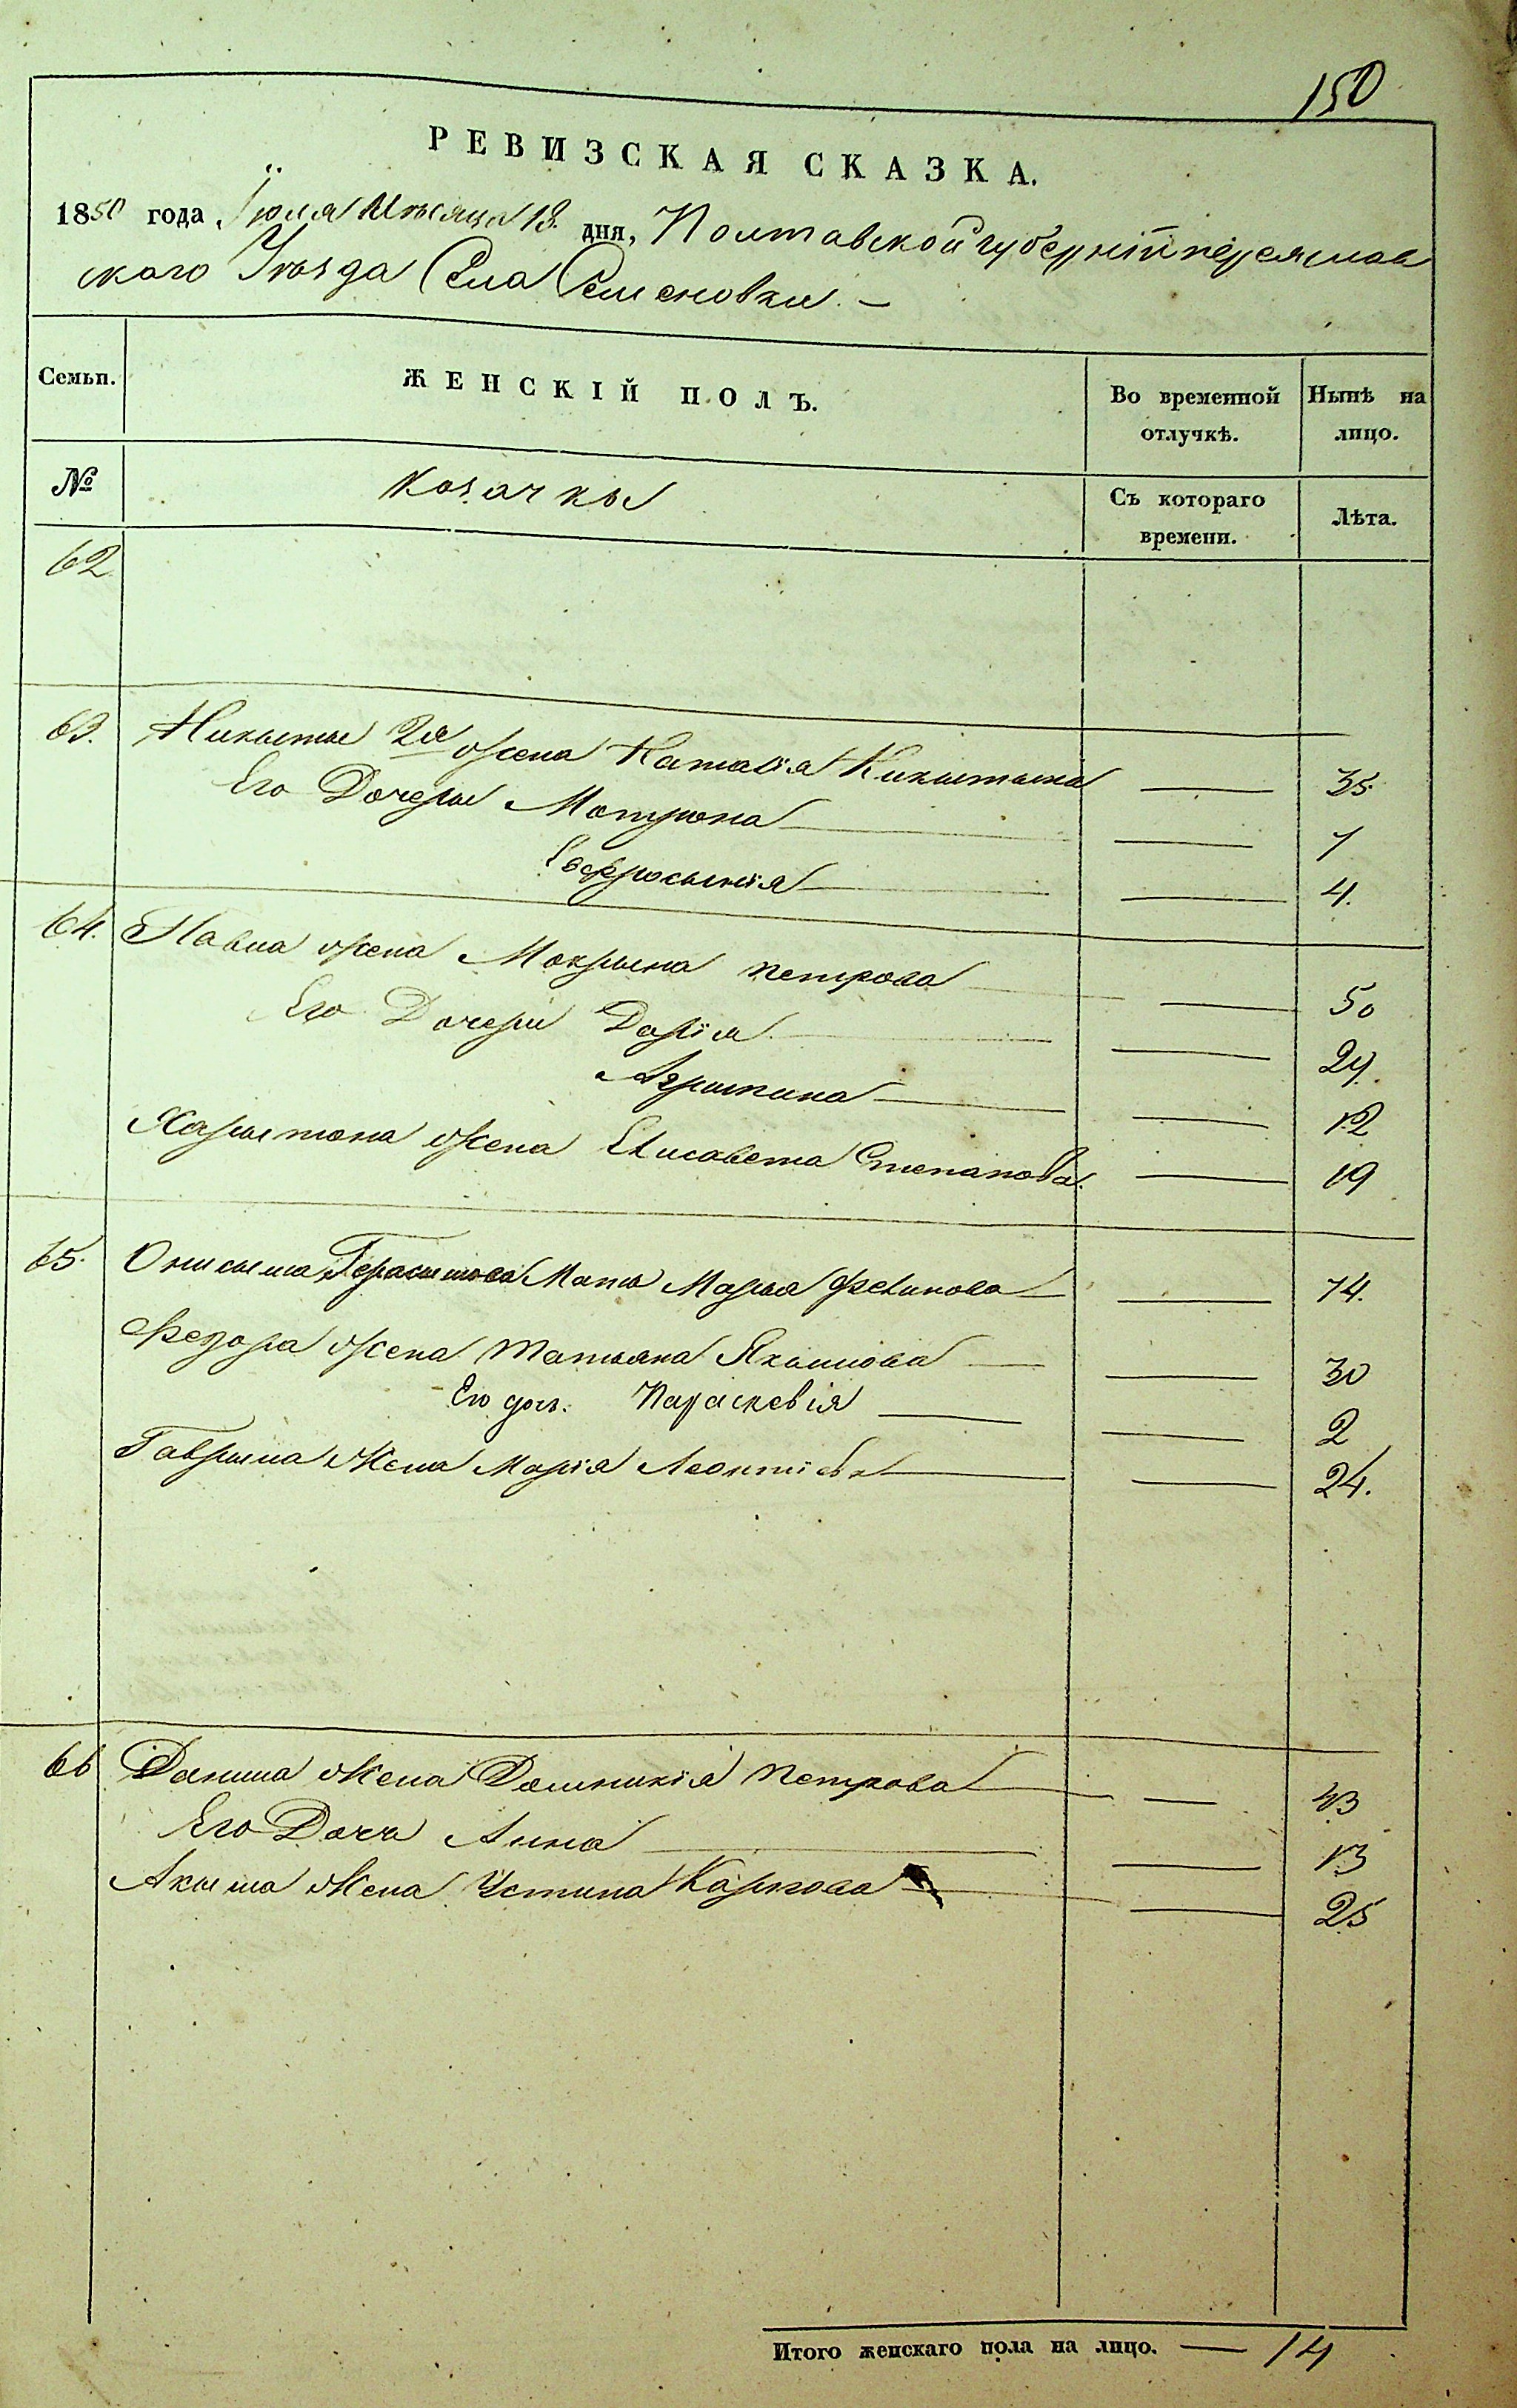 150
РЕВИЗСКАЯ СКАЗКА.
1850 года Іюля Мѣсяца 18. дня, Полтавской губерніи переяслав
ского Уѣзда Села Семеновки. —
Семьи. ЖЕНСКІЙ ПОЛЪ. Во временной отлучкѣ. Нынѣ на лицо.
№ Козачкы Съ котораго времени. Лѣта.
62
63. Никыты 2я жена Наталія Никытына — 35
Его Дочеры Мотрона — 7
Евфросынія — 4.
64. Павла жена Мокрына петрова — 50
Его Дочери Дарія — 24.
Агрыпина — 12
Харытона жена Елисавета Степанова. — 19
65. Онисыма Герасимова Мать Марья — 74.
Федора жена Татьяна Якимова — 30
Его доч. Параскевія — 2
Гаврыла Жена Марія Леонтіева — 24.
66 Данила жена Домникія петрова — 43
Его Доч Анна — 13
Акыма жена Устина Карпова — 25
Итого женскаго пола на лицо. — 14